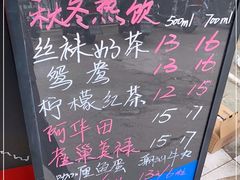 秋冬热饮 500ml 700ml
丝袜奶茶 13 16
鸳鸯 13 16
柠檬红茶 12 15
阿华田 15 17
雀巢美禄 15 17
咖喱鱼蛋